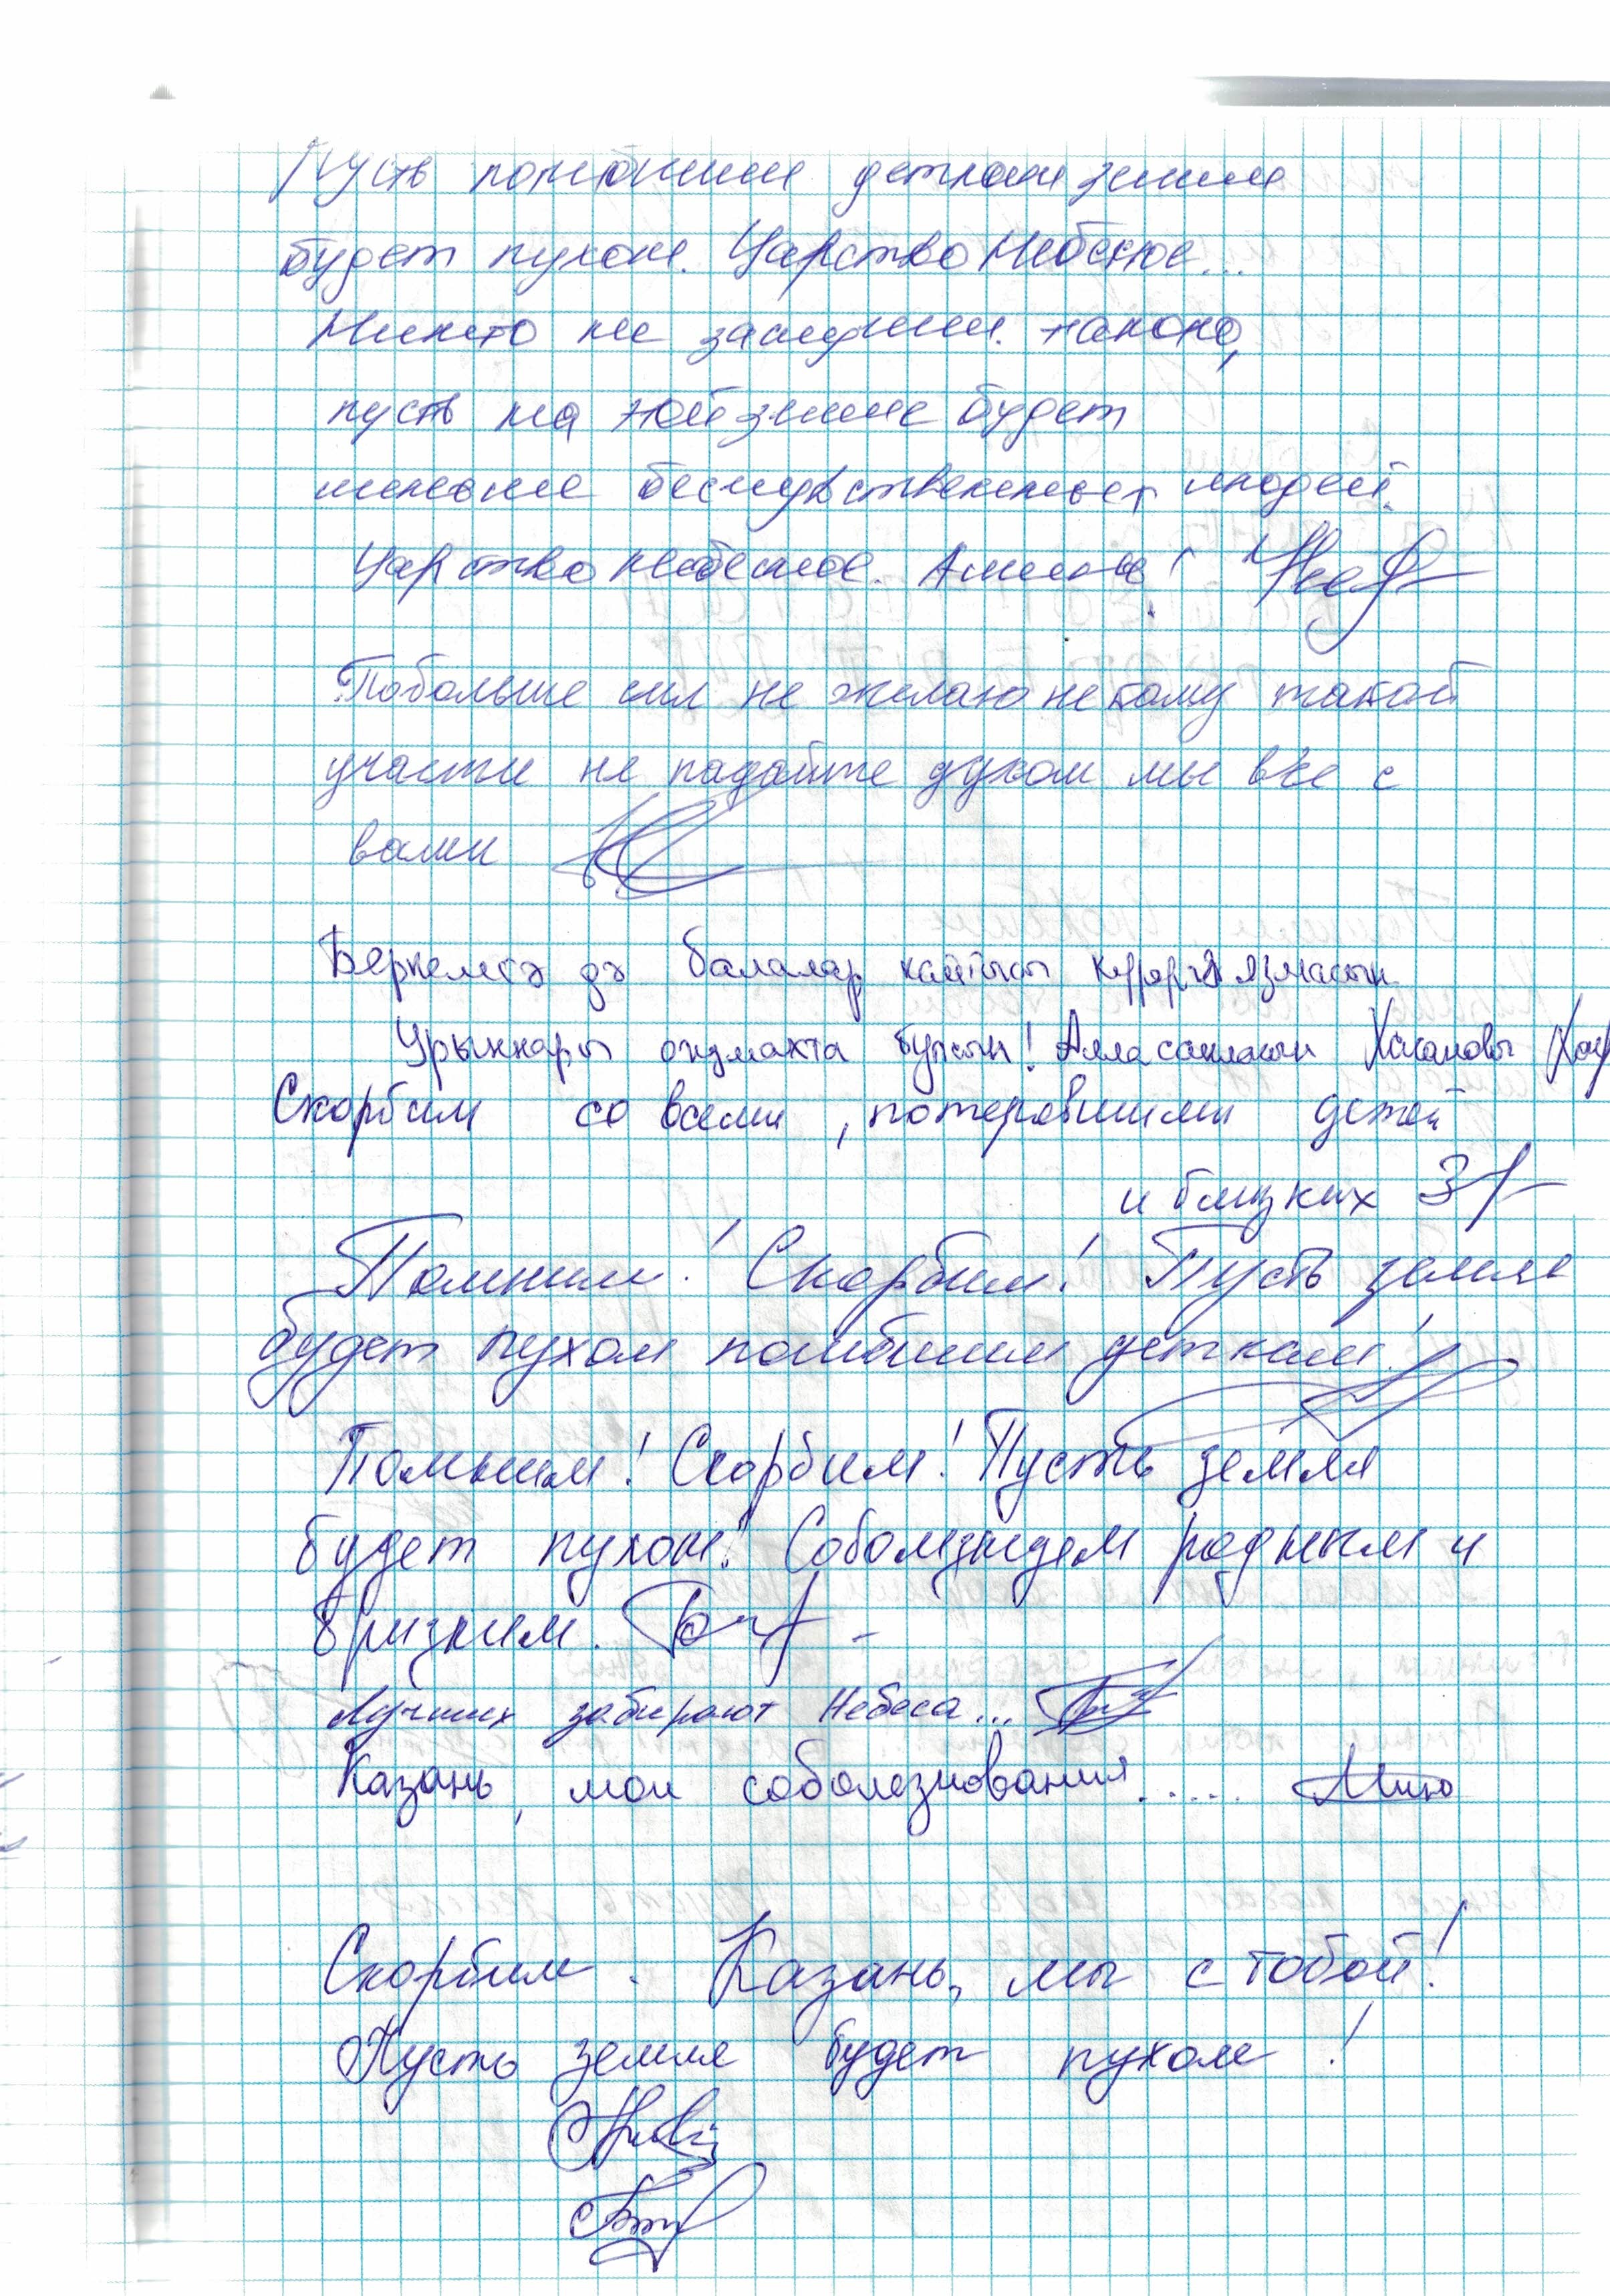 Пусть погибшим деткам земля
будет пухом. Царство Небесное...
Никто не заслужил такого,
пусть на той земле будет
меньше бесчувственных людей.
Царство небесное. Аминь!
Побольше сил не желаю не кому такой
участи не падайте духом мы все с
вами
Беркемгә дә балалар кайгысы күрергә язмасын.
Урыннары ожмахта булсын! Алла сакласын Хасановы
Скорбим со всеми, потерявшими детей
и близких
Помним! Скорбим! Пусть земля
будет пухом погибшим деткам!
Помним! Скорбим! Пусть земля
будет пухом! Соболезнуем родным и
близким.
Лучших забирают Небеса...
Казань, мои соболезнования......
Скорбим. Казань, мы с тобой!
Пусть земля будет пухом!